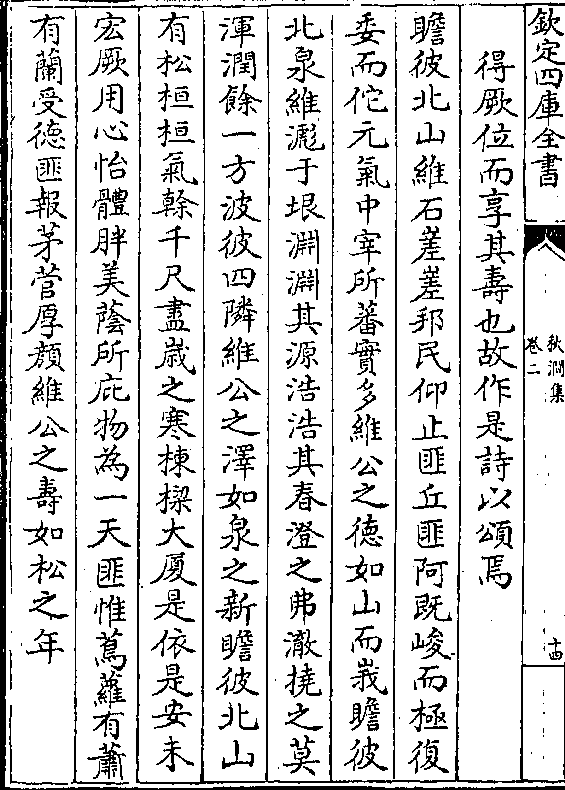 欽定四庫全書
秋澗集
卷二
十四
得厥位而享其壽也故作是詩以頌焉
瞻彼北山維石差差邦民仰止匪丘匪阿既峻而極復
委而佗元氣中宰所蕃實多維公之德如山而峩瞻彼
北泉維滮于垠淵淵其源浩浩其春澄之弗澈撓之莫
渾潤餘一方波彼四隣維公之澤如泉之新瞻彼北山
有松桓桓氣榦千尺盡嵗之寒棟樑大厦是依是安未
宏厥用心怡體胖美蔭所庇物為一天匪惟蔦蘿有蕭
有蘭受德匪報茅菅厚顔維公之壽如松之年